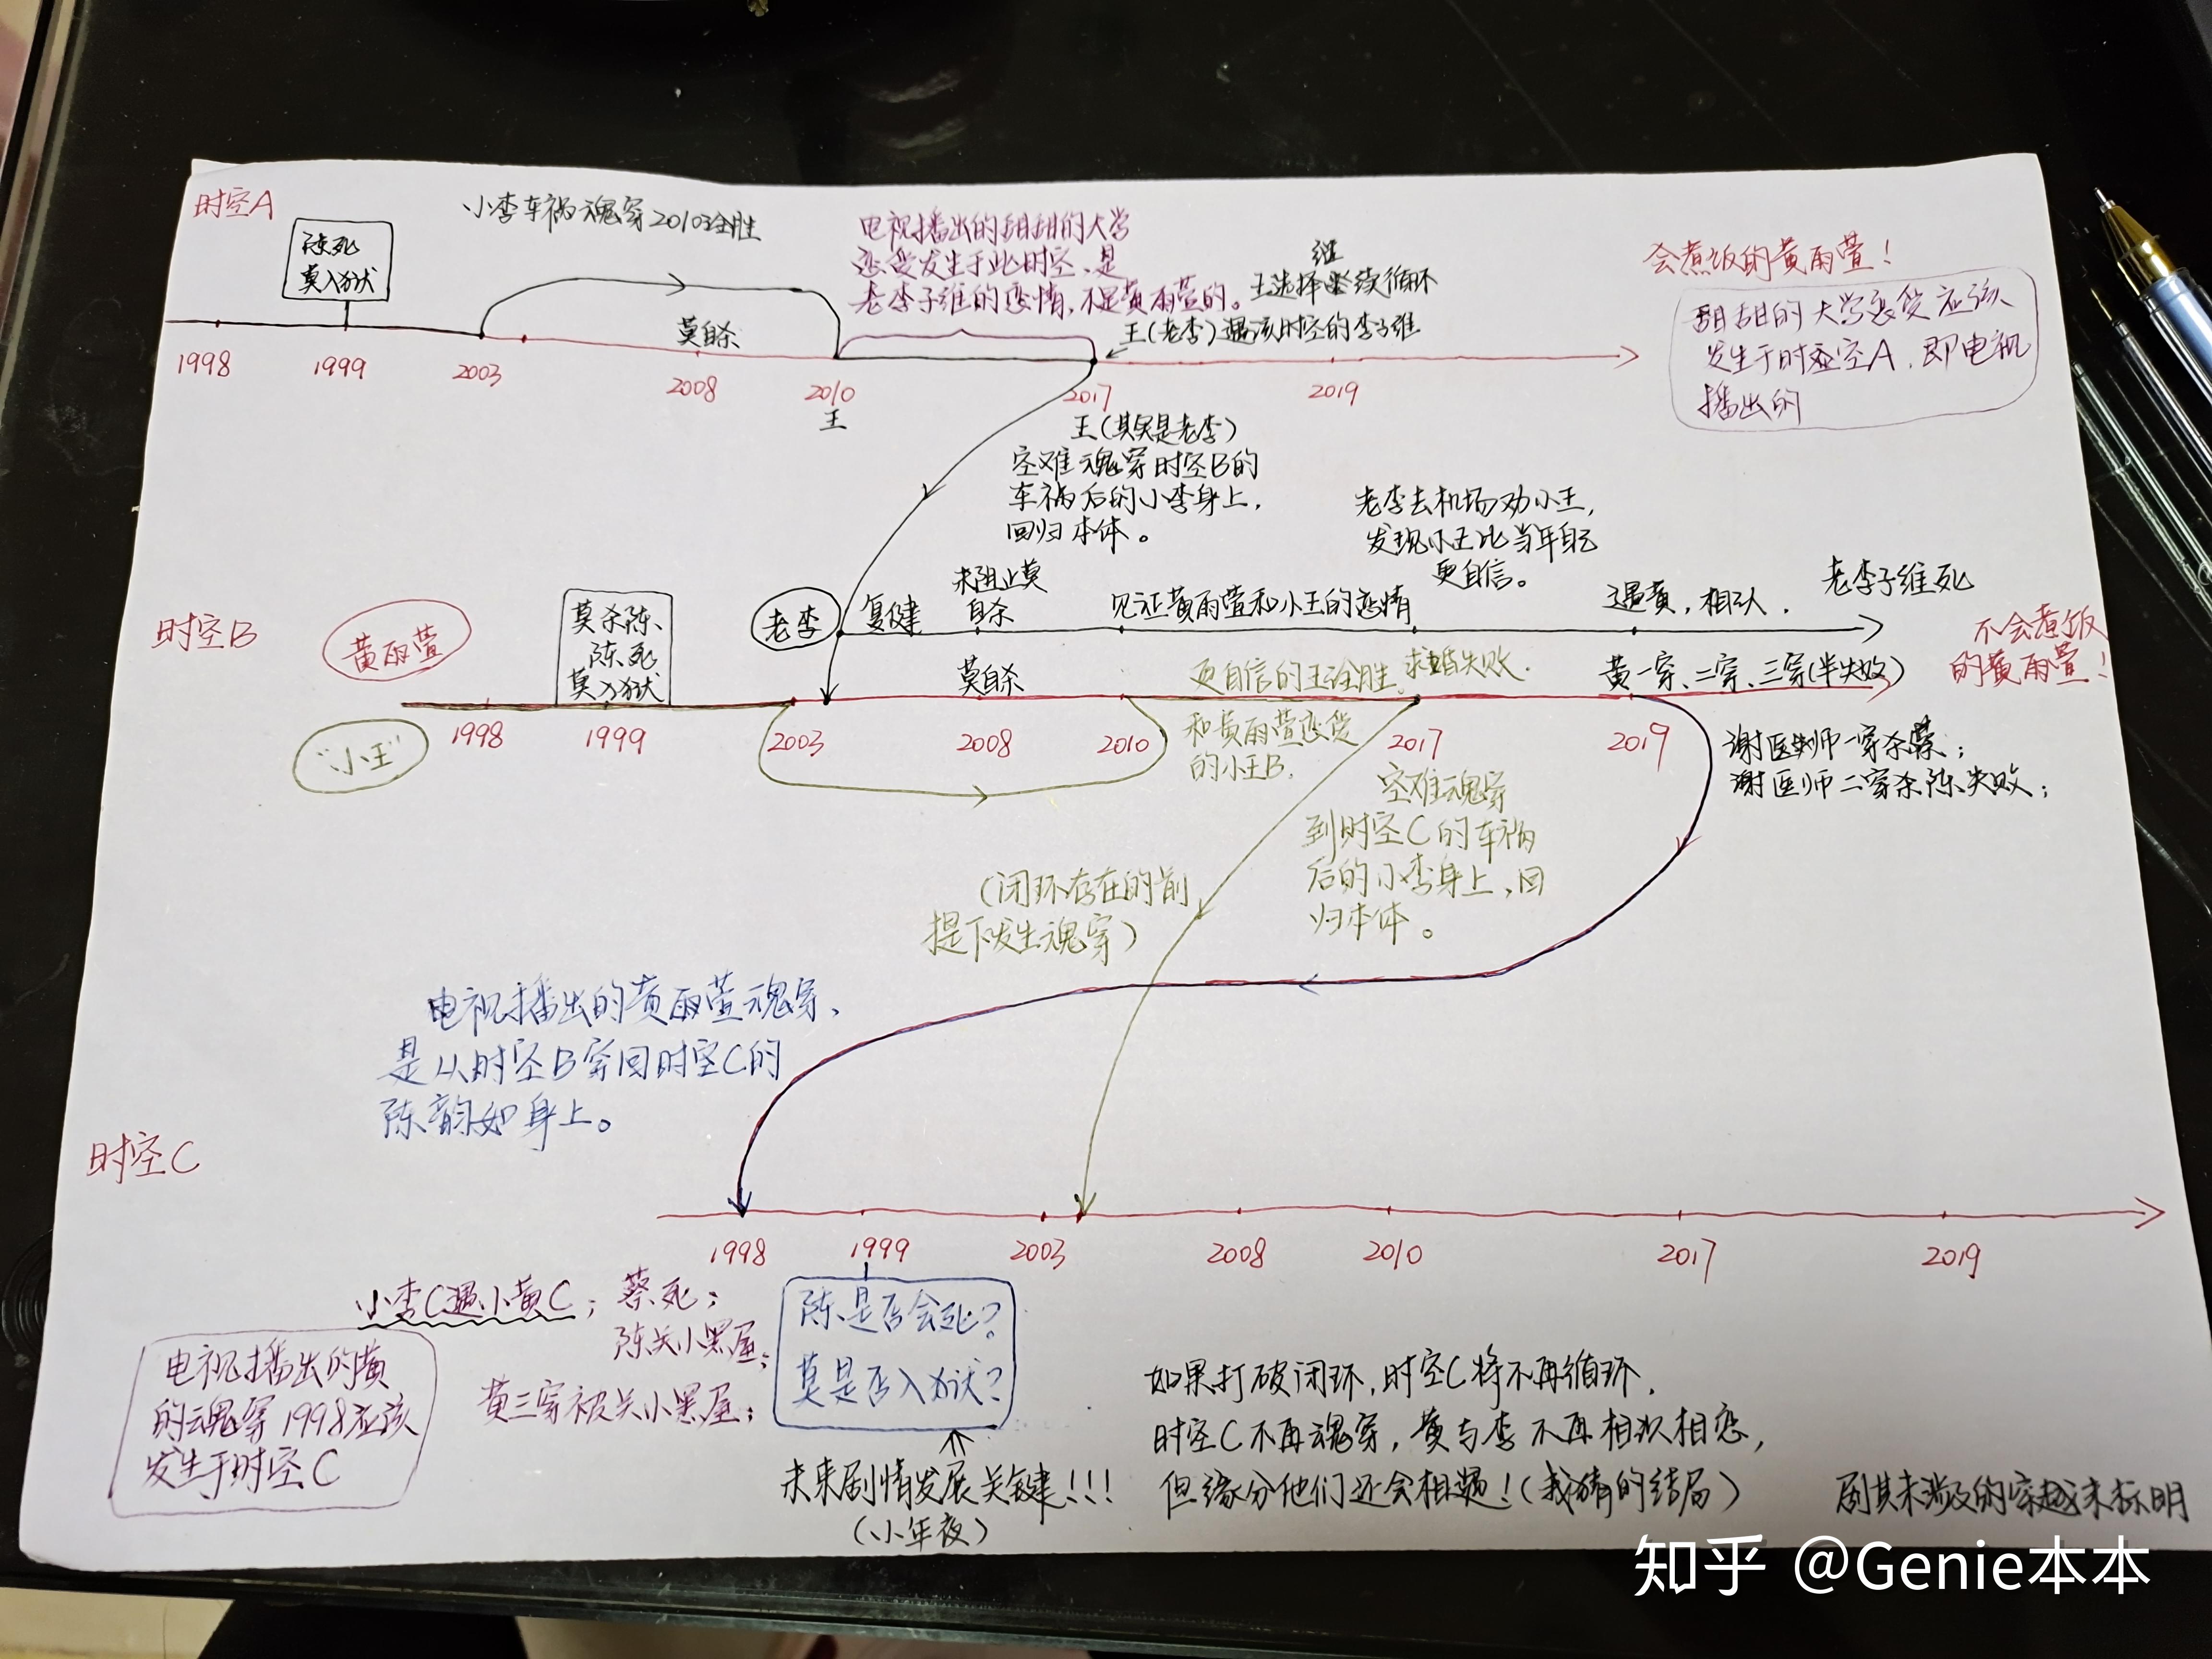 时空A
陈死
莫入狱
小李车祸魂穿2010王诠胜
电视播出的甜甜的大学
恋爱发生于此时空,是
老李子维的恋情,不是黄雨萱的。
继
王选择继续循环
王(老李)遇该时空的李子维
会煮饭的黄雨萱!
甜甜的大学恋爱应该
发生于时空A,即电视
播出的
莫自杀
1998
1999
2003
2008
2010
王
2017
2019
王(其实是老李)
空难魂穿时空B的
车祸后的小李身上,
回归本体。
老李去机场劝小王,
发现小王比当年自己
更自信。
时空B
黄雨萱
"小王"
莫杀陈、
陈死
莫入狱
老李
复健
未阻止莫
自杀
见证黄雨萱和小王的恋情
遇黄,相认,
老李子维死
不会煮饭
的黄雨萱!
莫自杀
更自信的王诠胜,求婚失败.
黄一穿、二穿、三穿(半失败)
1998
1999
2003
2008
2010
和黄雨萱恋爱
的小王B.
2017
2019
谢医师一穿杀蔡;
谢医师二穿杀陈失败;
空难魂穿
到时空C的车祸
后的小李身上,回
归本体。
(闭环存在的前
提下发生魂穿)
电视播出的黄雨萱魂穿,
是从时空B穿回时空C的
陈韵如身上。
时空C
1998
1999
2003
2008
2010
2017
2019
小李C遇小黄C;蔡死;
陈关小黑屋;
黄三穿被关小黑屋;
电视播出的黄
的魂穿1998应该
发生于时空C
陈是否会死?
莫是否入狱?
未来剧情发展关键!!!
(小年夜)
如果打破闭环,时空C将不再循环.
时空C不再魂穿,黄与李不再相识相恋,
但缘分他们还会相遇!(我猜的结局)
剧其未涉及的穿越未标明
知乎 @Genie本本